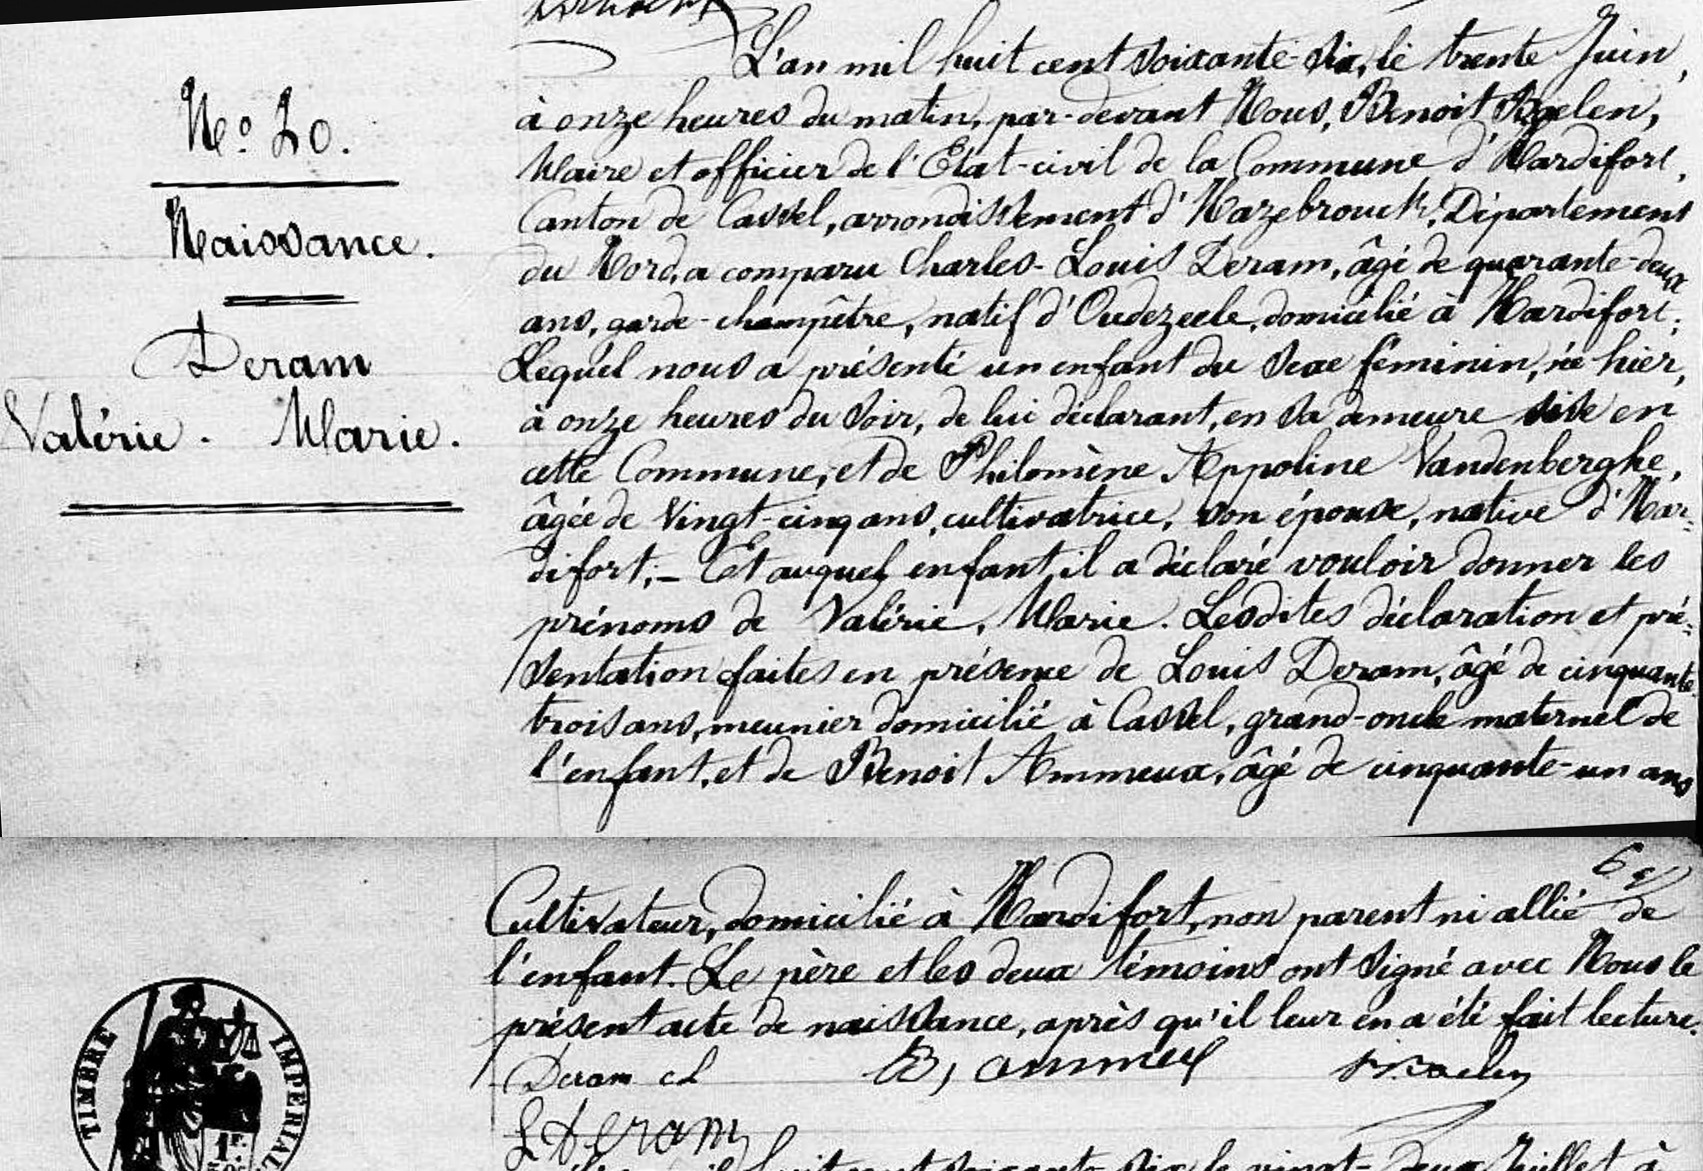 N.º 20.
Naissance.
Deram
Valérie. Marie.
L'an mil huit cent soixante-six, le trente Juin,
à onze heures du matin, par-devant Nous, Benoit
Maire et officier de l'Etat-civil de la Commune d'Hardifort,
Canton de Cassel, arrondissement d'Hazebrouck, Département
du Nord, a comparu Charles-Louis Deram, âgé de quarante-deux
ans, garde-champêtre, natif d'Oudezeele, domicilié à Hardifort;
Lequel nous a présenté un enfant du sexe féminin, né hier,
à onze heures du soir, de lui déclarant, en sa demeure sise en
cette Commune, et de Philomène Appoline Vandenberghe,
âgée de vingt-cinq ans, cultivatrice, son épouse, native d'Har-
difort;- Et auquel enfant il a déclaré vouloir donner les
prénoms de Valérie, Marie. Lesdites déclaration et pré-
sentation faites en présence de Louis Deram, âgé de cinquante
trois ans, meunier domicilié à Cassel, grand-oncle maternel de
l'enfant, et de Benoit Ammeux, âgé de cinquante-un ans
Cultivateur, domicilié à Hardifort, non parent ni allié de
l'enfant. Le père et les deux témoins ont signé avec Nous le
présent acte de naissance, après qu'il leur en a été fait lecture.
Deram cL B, ammeux
L Deram
TIMBRE IMPERIAL
1F.
soixante-six le vingt-deux Juillet à